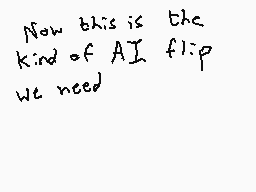 Now this is the
kind of AI flip
we need